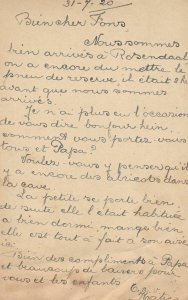 31-7-20
Bien cher Fons,
Nous sommes
bien arrivés à Rosendaal
on a encore du mettre le
pneu de reserve il était 2h
avant que nous sommes
arrivés.
Je n'ai plus eu l'occasion
de vous dire bonjour hein
comment vous portez-vous
tous et Papa?
Voulez vous y penser qu'il
y a encore des abricots dans
la cave.
La petite se porte bien
de suite elle était habituée
a bien dormi, mange bien
elle est tout à fait à son aise
ici
Bien des compliments à Papa
et beaucoup de baisers pour
vous et les enfants